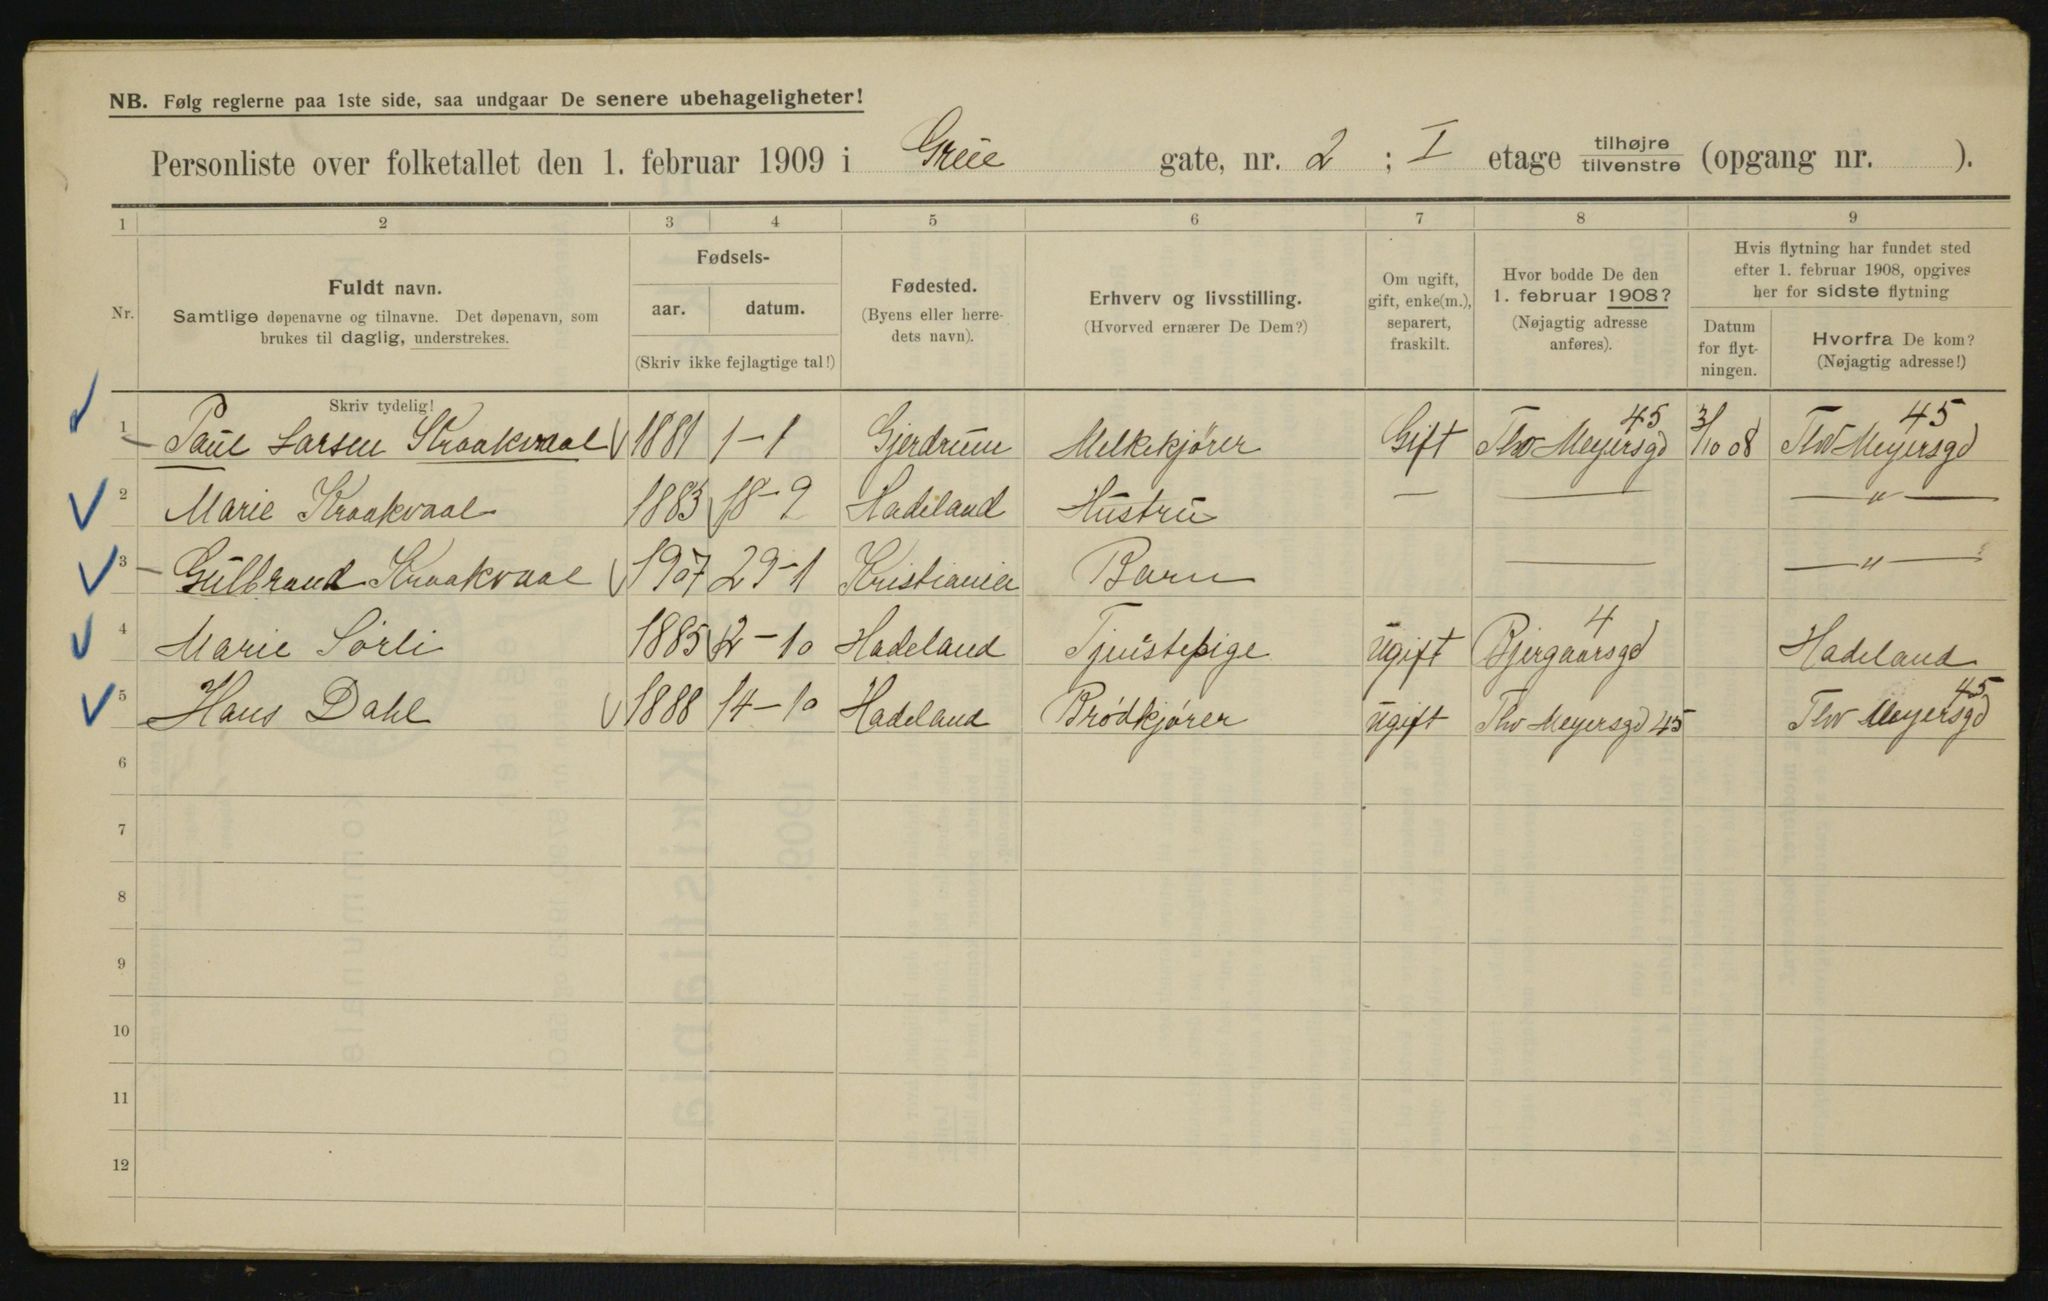 NB. Følg reglerne paa 1ste side, saa undgaar De senere ubehageligheter!
Personliste over folketallet den 1. februar 1909 i Grüe gate, nr. 2 ; I etage tilhøjre / tilvenstre (opgang nr. ).
1 2 3 4 5 6 7 8 9
Nr.
Fuldt navn.
Samtlige døpenavne og tilnavne. Det døpenavn, som
brukes til daglig, understrekes.
Fødsels-
aar. datum.
(Skriv ikke fejlagtige tal!)
Fødested.
(Byens eller herre-
dets navn).
Erhverv og livsstilling.
(Hvorved ernærer De Dem?)
Om ugift,
gift, enke(m.),
separert,
fraskilt.
Hvor bodde De den
1. februar 1908?
(Nøjagtig adresse
anføres).
Hvis flytning har fundet sted
efter 1. februar 1908, opgives
her for sidste flytning
Datum
for flyt-
ningen.
Hvorfra De kom?
(Nøjagtig adresse!)
Skriv tydelig!
1 Paul Larsen Kraakvaal 1881 1-1 Gjerdrum Melkekjører Gift Thv Meyersgd 45 3/10 08 Thv Meyersgd 45
2 Marie Kraakvaal 1883 18-2 Hadeland Hustru — — — " —
3 Gulbrand Kraakvaal 1907 29-1 Kristiania Barn — — " —
4 Marie Sörli 1885 2-10 Hadeland Tjenstepige Ugift Bjergaarsgd 4 Hadeland
5 Hans Dahl 1888 14-10 Hadeland Brödkjører Ugift Thv Meyersgd 45 Thv Meyersgd 45
6
7
8
9
10
11
12